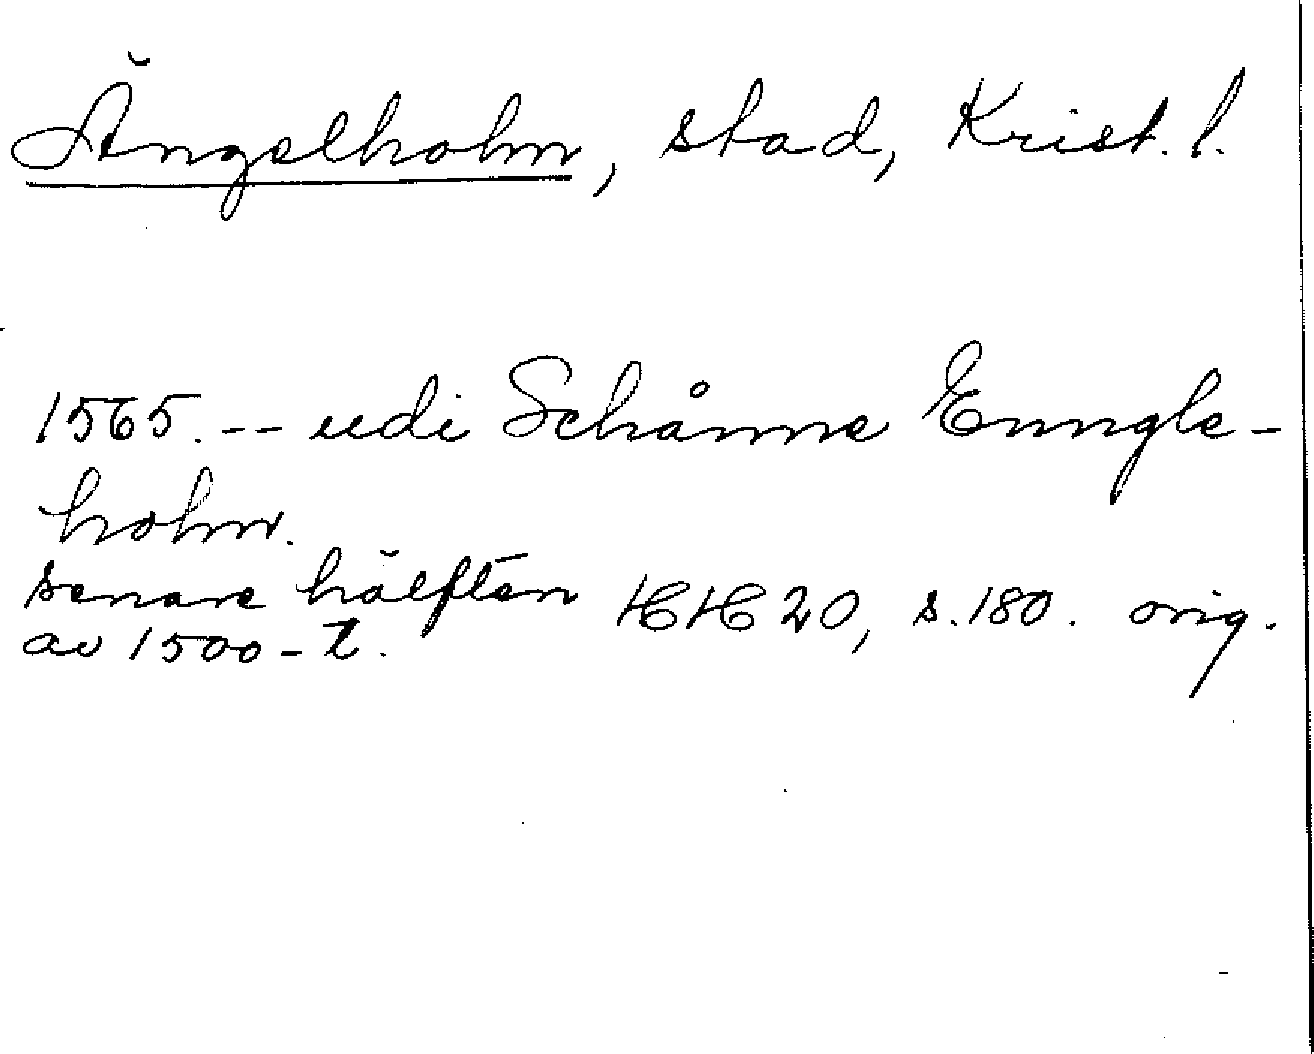 Ängelholm, stad, Krist. l.
1565. -- udi Schånne Enngle-
holm.
senare hälften HH 20, s. 180. orig.
av 1500-t.